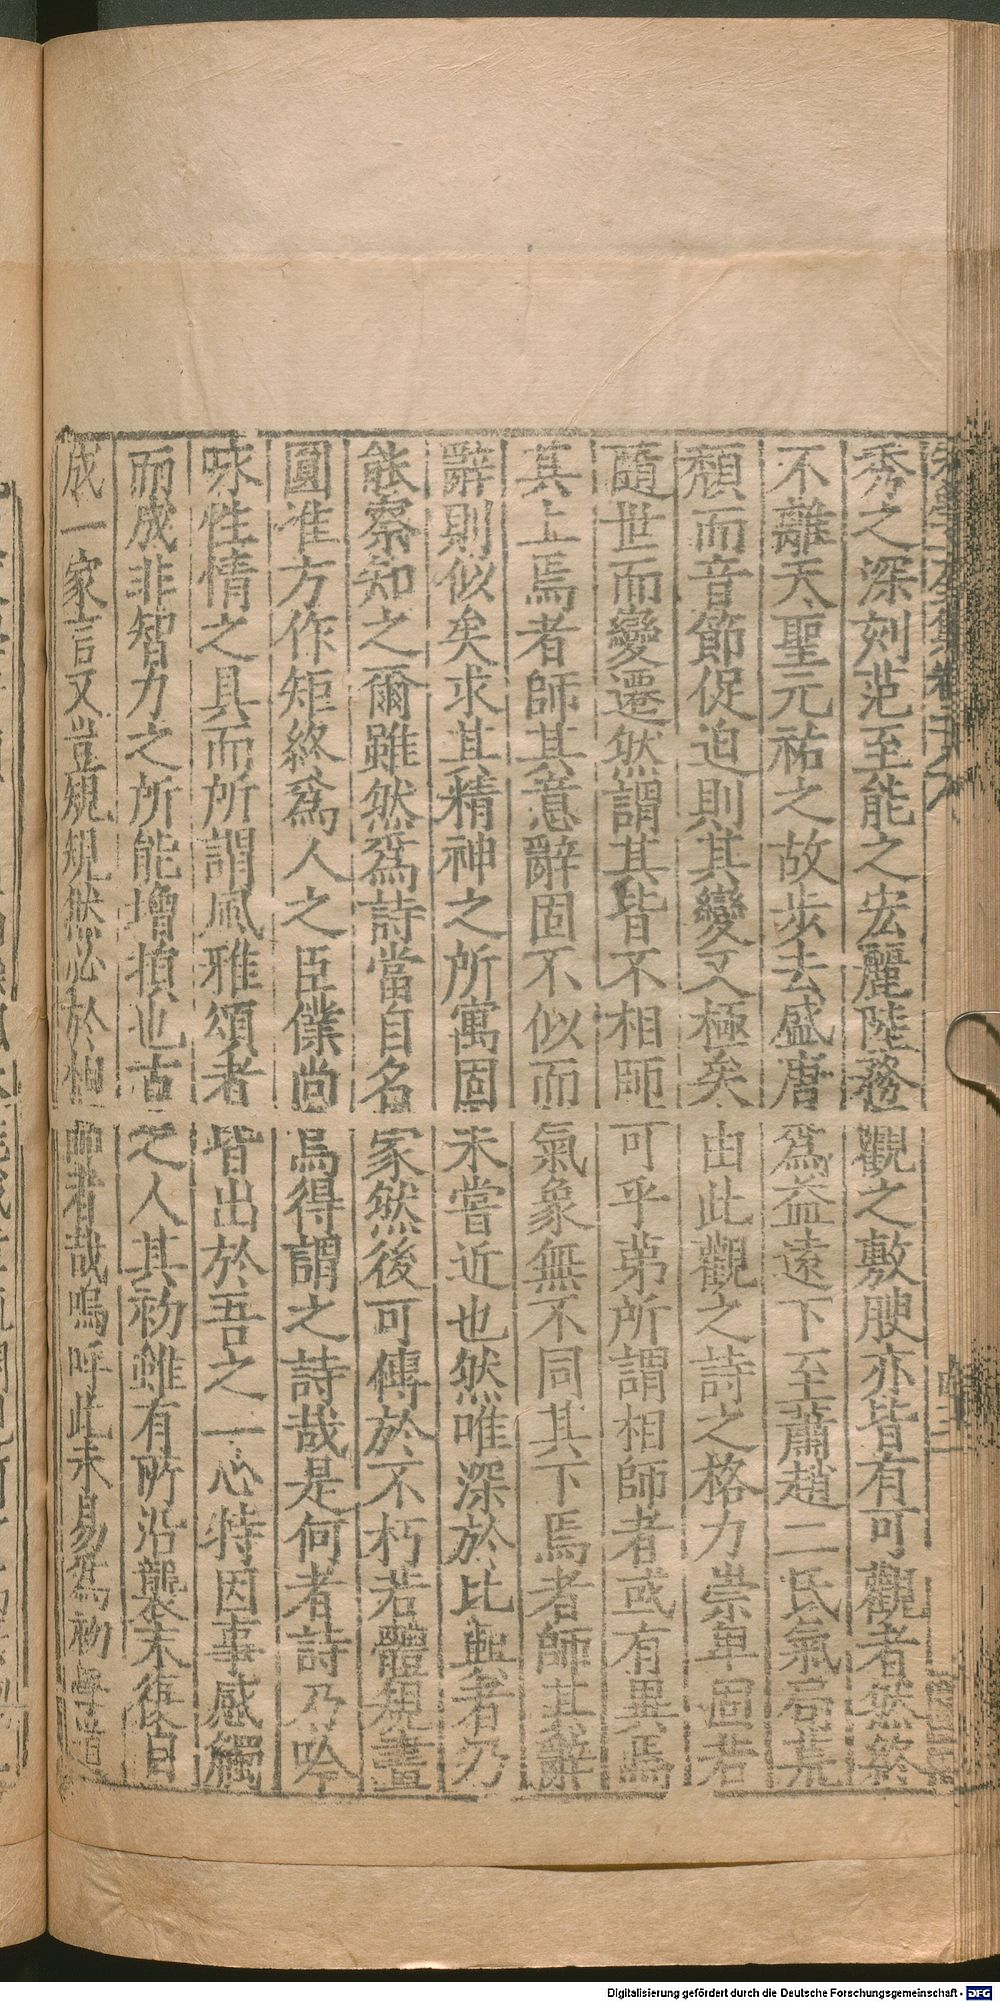 宋學士全集卷二十八
秀之深刻范至能之宏麗陸務觀之敷腴亦皆有可觀者然終
不離天聖元祐之故步去盛唐為益遠下至蕭趙二氏氣局荒
頹而音節促迫則其變又極矣由此觀之詩之格力崇卑固若
隨世而變遷然謂其皆不相師可乎苐所謂相師者或有異焉
其上焉者師其意辭固不似而氣象無不同其下焉者師其辭
辭則似矣求其精神之所寓固未嘗近也然唯深於比興者乃
能察知之爾雖然爲詩當自名家然後可傳於不朽若體規畫
圓准方作矩終爲人之臣僕尚烏得謂之詩哉是何者詩乃吟
咏性情之具而所謂風雅頌者皆出於吾之一心特因事感觸
而成非智力之所能增損也古之人其初雖有所沿襲末復自
成一家言又豈規規然必於相師者哉嗚呼此未易爲初學道
Digitalisierung gefördert durch die Deutsche Forschungsgemeinschaft - DFG